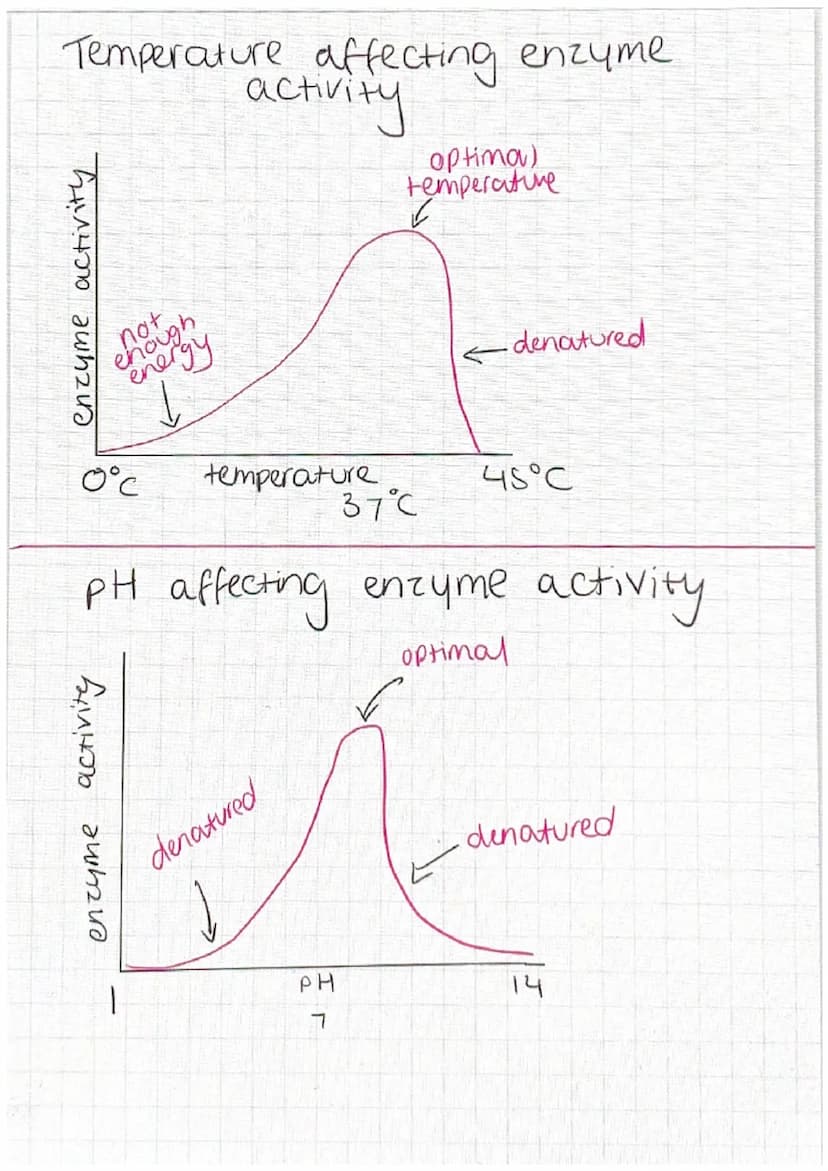 Temperature affecting enzyme
activity
optimal
temperature
enzyme activity
not
enough
energy
denatured
0°C
temperature
45°C
37°C
pH affecting enzyme activity
optimal
enzyme activity
denatured
denatured
1
PH
14
7